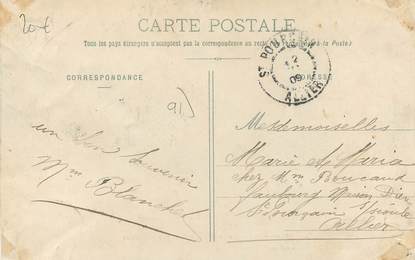 20€
CARTE POSTALE
Tous les pays étrangers n'acceptent pas la correspondance au recto (à la Poste)
CORRESPONDANCE
ST POURÇAIN
2
09
ALLIER
91
un bon Souvenir
Mme Blanchet
Mesdemoiselles
Marie et Maria
chez Mme Boucaud
faubourg Maison Dieu
St Pourçain s/ Sioule
Allier